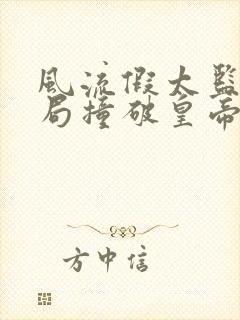 风流假太监
局撞破皇帝
方中信